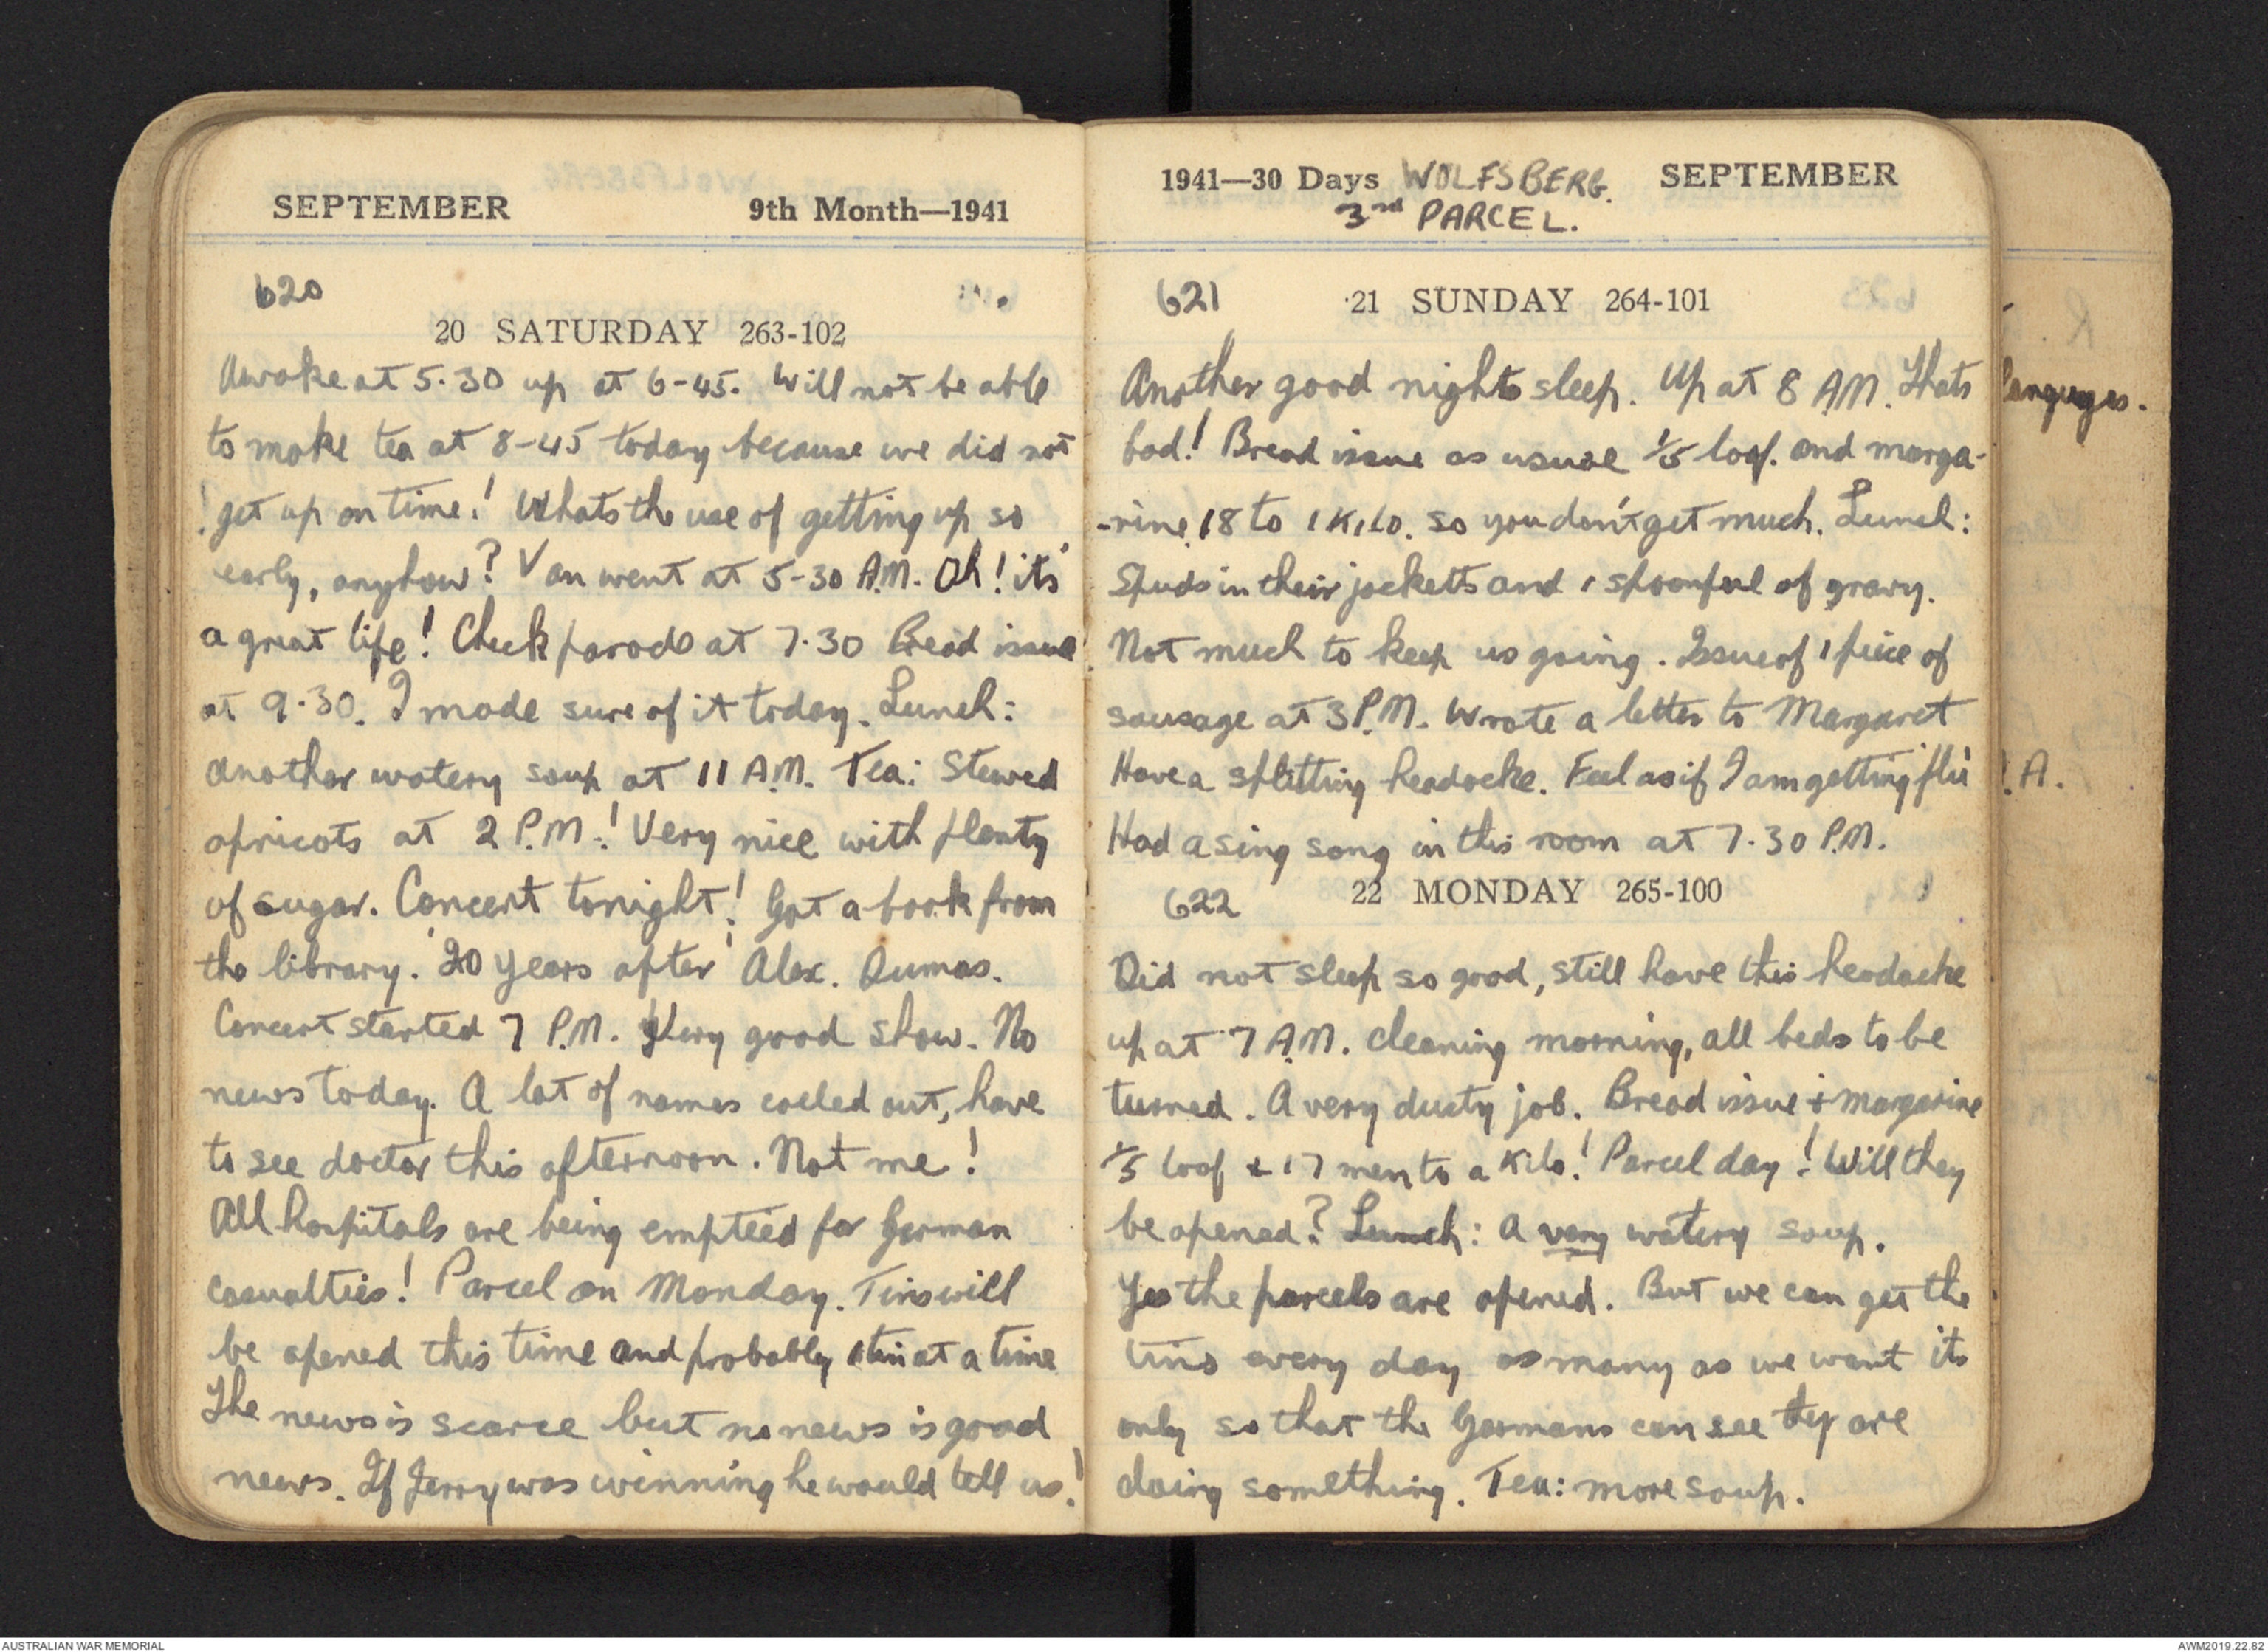 SEPTEMBER 9th Month—1941
620
20 SATURDAY 263-102
Awoke at 5.30 up at 6-45. Will not be able
to make tea at 8-45 today because we did not
get up on time! Whats the use of getting up so
early, anyhow? Van went at 5-30 A.M. Oh! its'
a great life! Check parade at 7.30 Bread issue
at 9.30. I made sure of it today. Lunch:
another watery soup at 11 A.M. Tea: Stewed
apricots at 2 P.M.! Very nice with plenty
of sugar. Concert tonight! Got a book from
the library. '20 years after' Alex. Dumas.
Concert started 7 P.M. Very good show. No
news today. A lot of names called out, have
to see doctor this afternoon. Not me!
All hospitals are being emptied for German
casualties! Parcel on Monday. Tins will
be opened this time and probably 1 tin at a time
The news is scarce but no news is good
news. If Jerry was winning he would tell us!
1941—30 Days WOLFSBERG. SEPTEMBER
3rd PARCEL.
621 21 SUNDAY 264-101
Another good nights sleep. Up at 8 AM. Thats
bad! Bread issue as usual 1/5 loaf. and marga-
-rine 18 to 1 KILO. so you don't get much. Lunch:
Spuds in their jacketts and 1 spoonful of gravy.
Not much to keep us going. Issue of 1 piece of
sausage at 3 P.M. Wrote a letter to Margaret
Have a splitting headache. Feel as if I am getting 'flu'
Had a sing song in this room at 7.30 P.M.
622 22 MONDAY 265-100
Did not sleep so good, still have this headache
up at 7 A.M. cleaning morning, all beds to be
turned. A very dusty job. Bread issue + margarine
1/5 loaf + 17 men to a Kilo! Parcel day! Will they
be opened? Lunch: A very watery soup.
Yes the parcels are opened. But we can get the
tins every day as many as we want its
only so that the Germans can see they are
doing something. Tea: more soup.
languages.
A.
AUSTRALIAN WAR MEMORIAL AWM2019.22.82